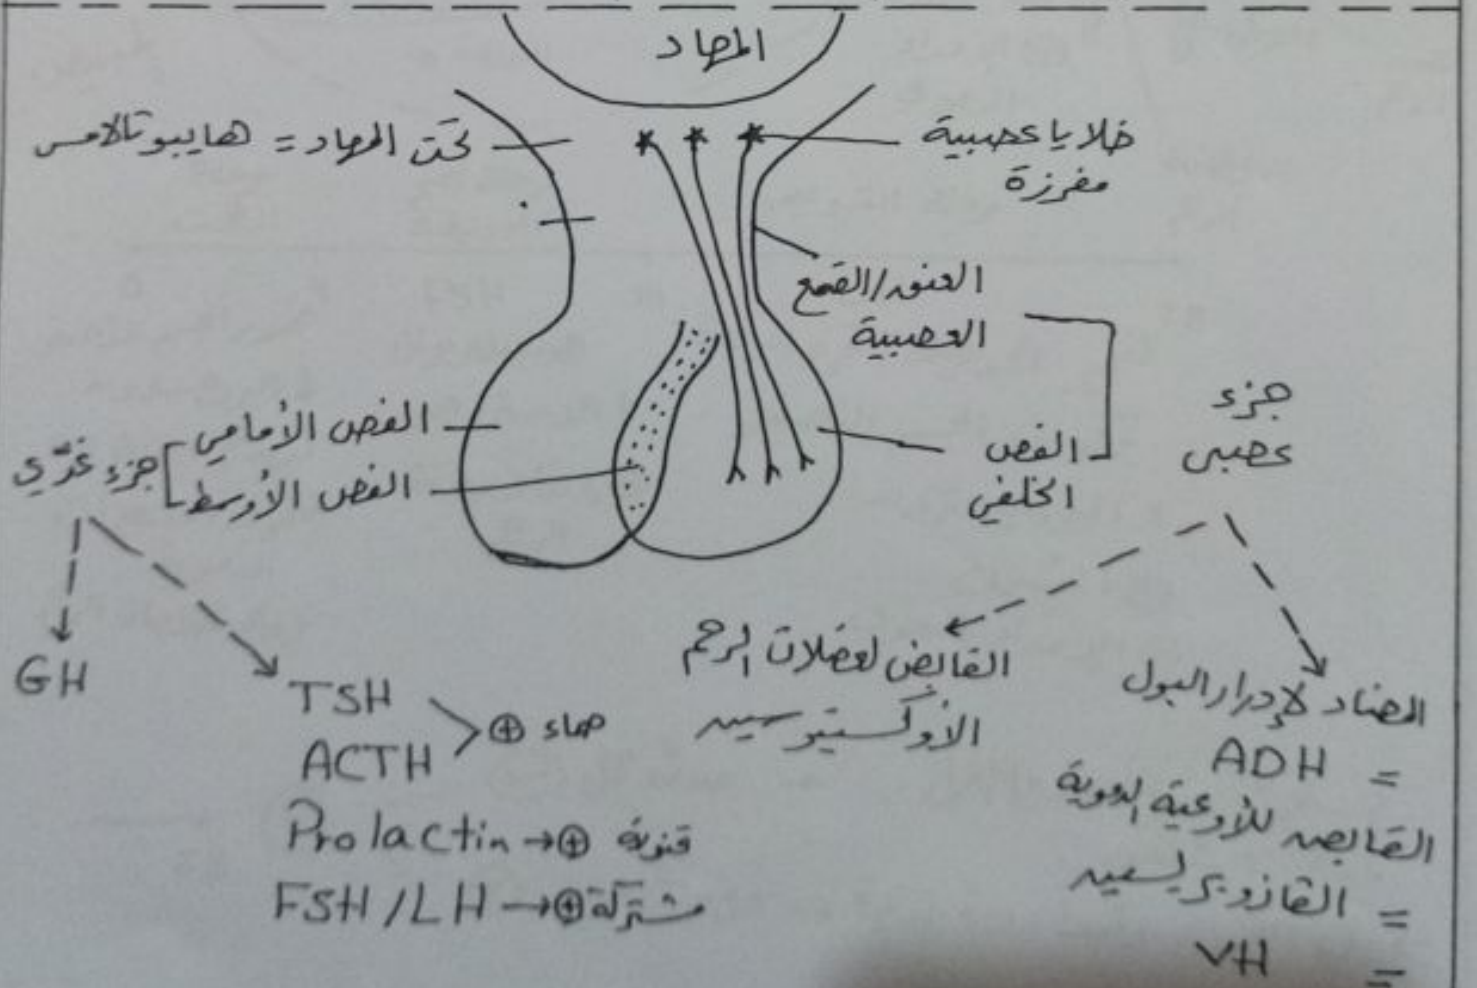 المهاد
تحت المهاد = هايبوتالامس
خلايا عصبية
مفرزة
العنق/القمع
العصبية
جزء
عصبي
الفص
الخلفي
الفص الأمامي
الفص الأوسط
جزء غدّي
GH
TSH
ACTH
⊕ صماء
Prolactin → ⊕ قنوية
FSH / LH → ⊕ مشتركة
القابض لعضلات الرحم
الأوكسيتوسين
المضاد لإدرار البول
= ADH
القابض للأوعية الدموية
= الفازوبريسين
= VH